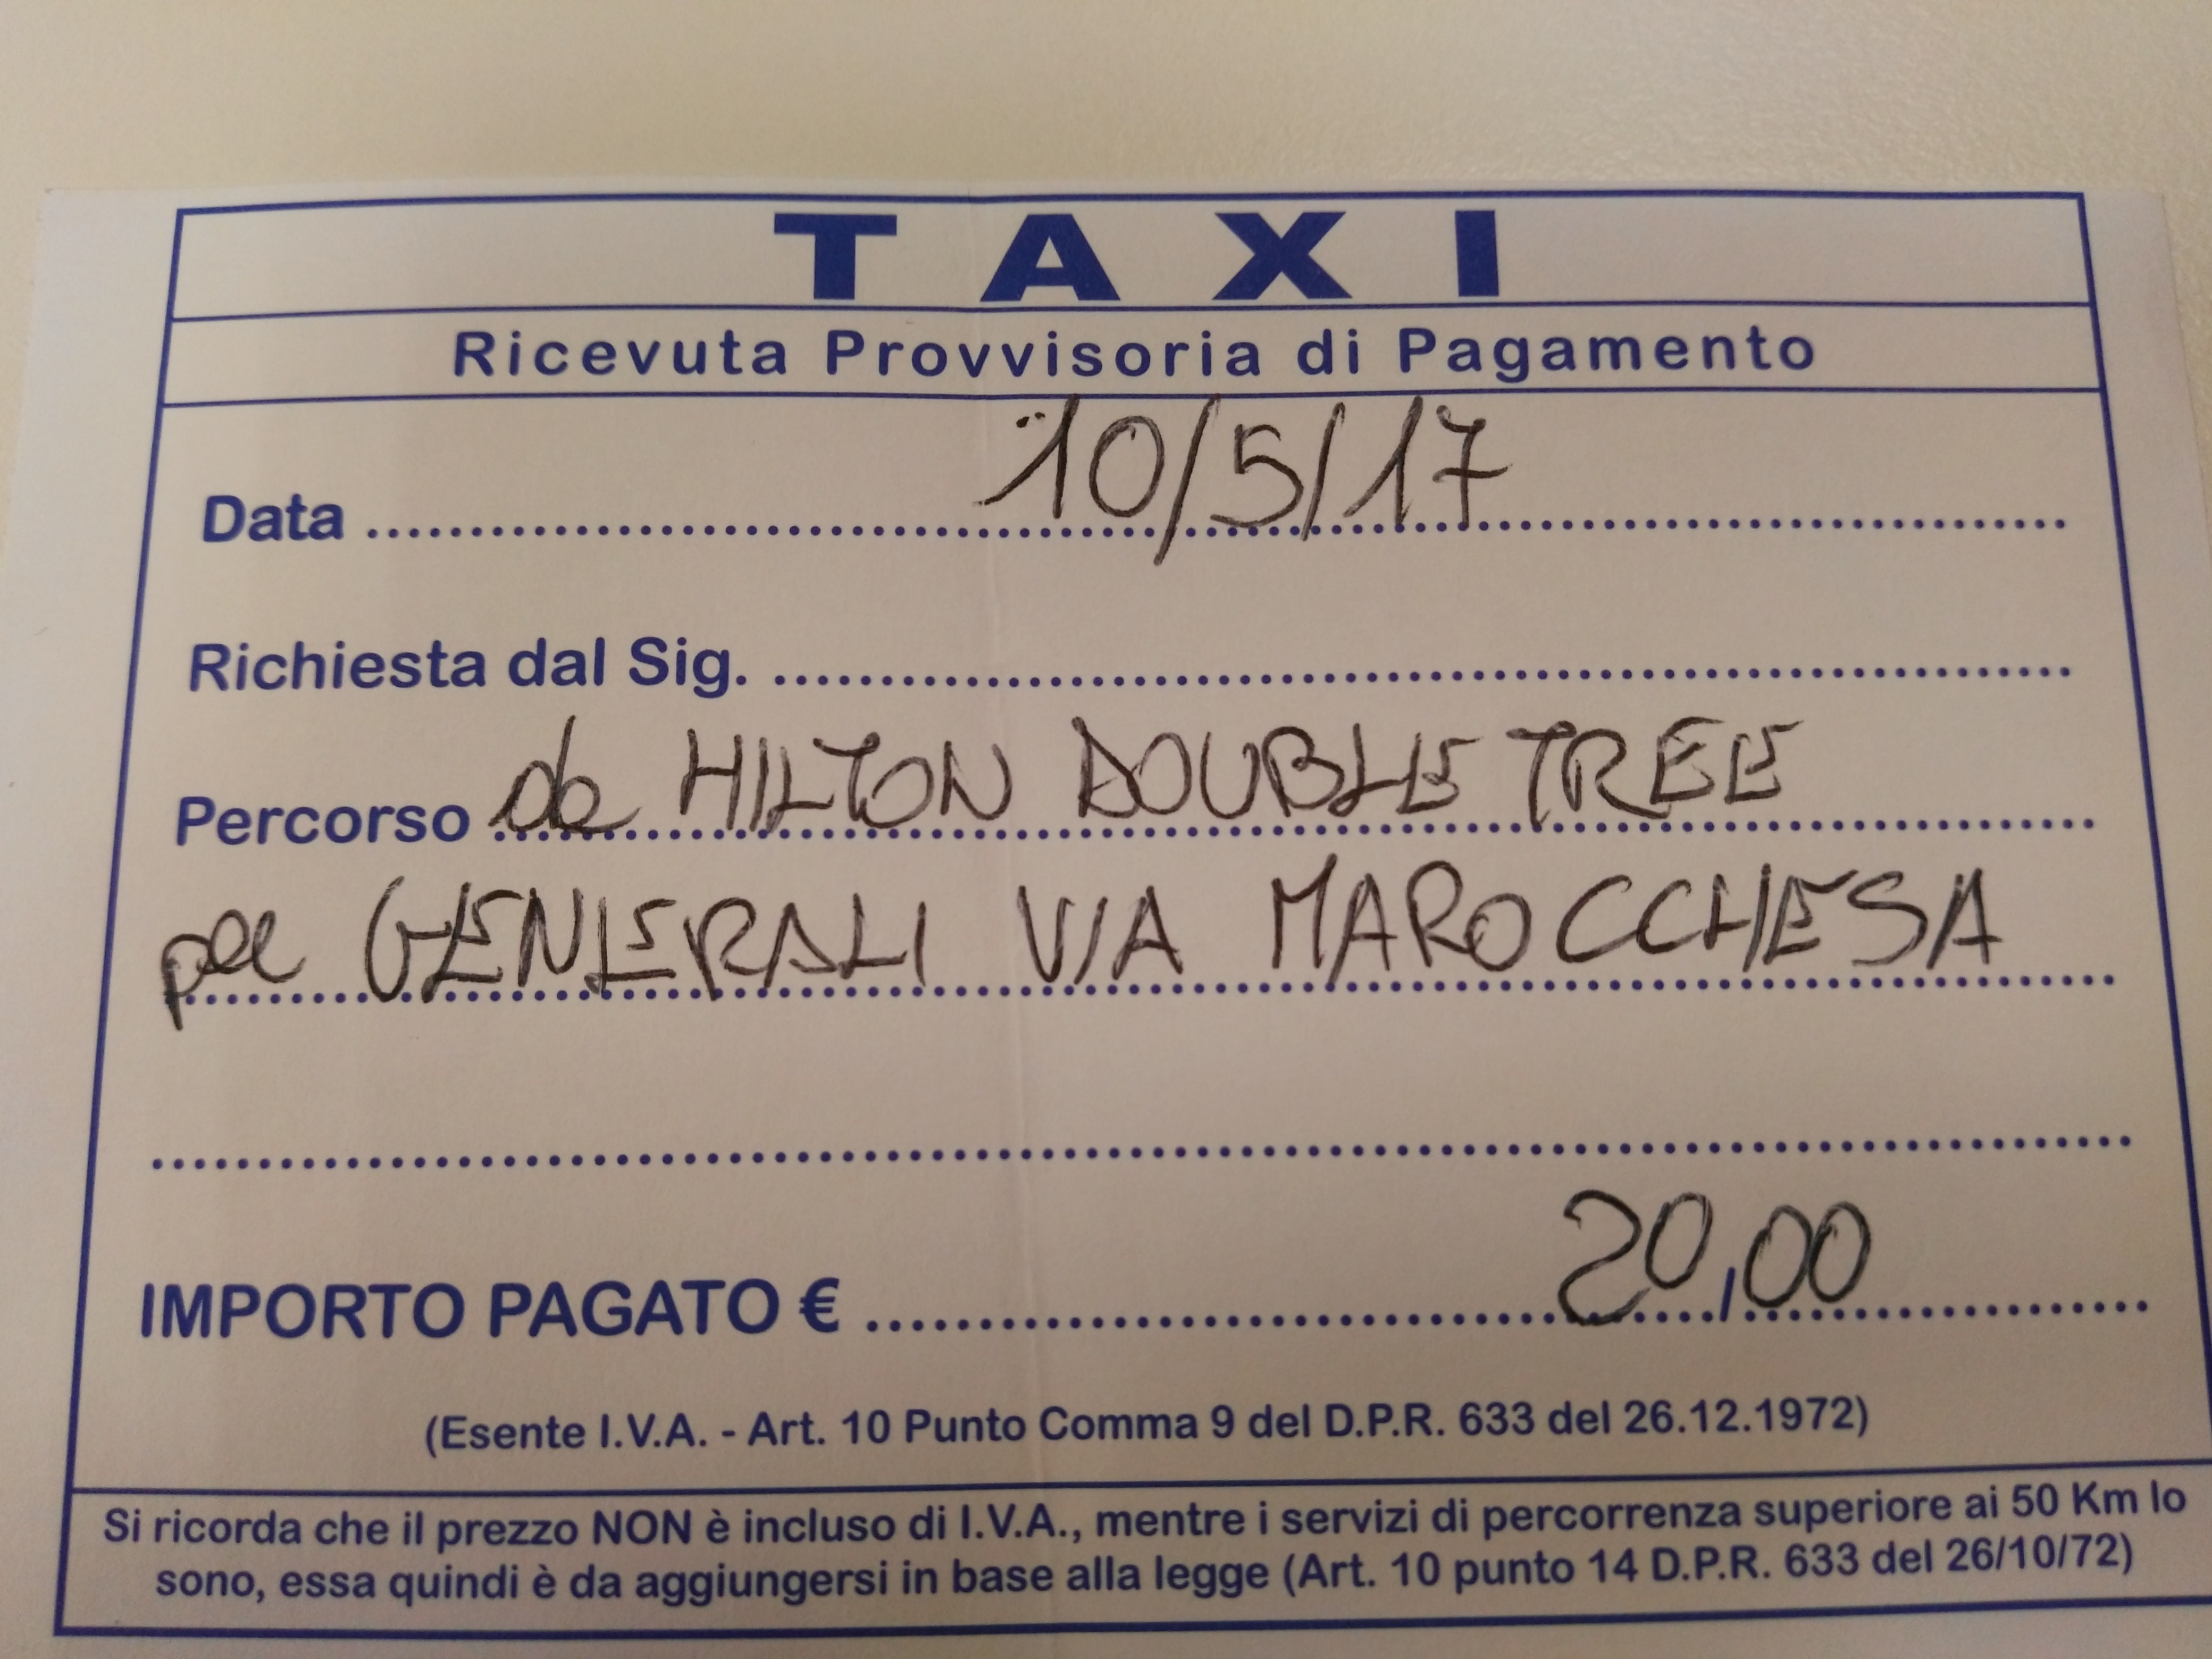 TAXI
Ricevuta Provvisoria di Pagamento
Data ........ 10/5/17 ........
Richiesta dal Sig. ........
Percorso da HILTON DOUBLE TREE
per GENERALI VIA MAROCCHESA
IMPORTO PAGATO € ........ 20,00 ........
(Esente I.V.A. - Art. 10 Punto Comma 9 del D.P.R. 633 del 26.12.1972)
Si ricorda che il prezzo NON è incluso di I.V.A., mentre i servizi di percorrenza superiore ai 50 Km lo
sono, essa quindi è da aggiungersi in base alla legge (Art. 10 punto 14 D.P.R. 633 del 26/10/72)